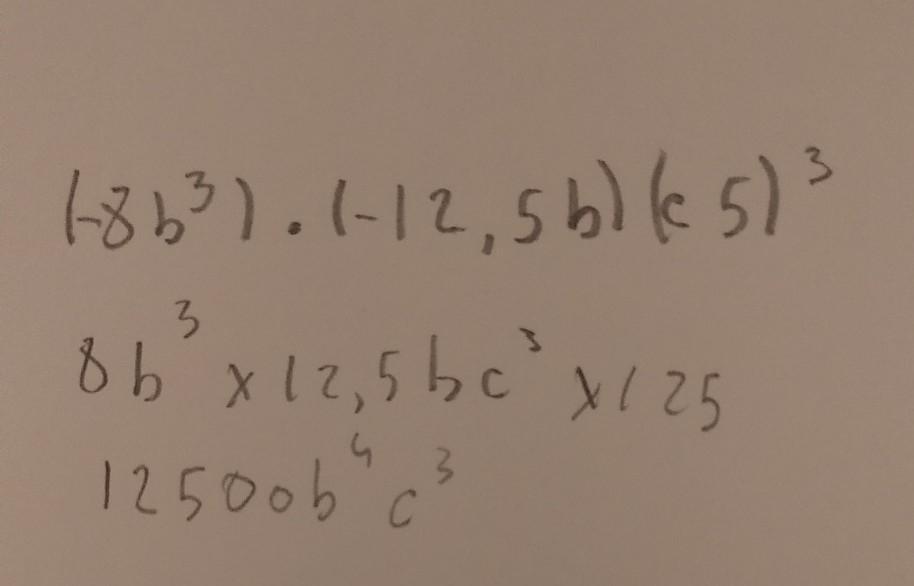 (-8b³).(-12,5b)(c5)³
8b³ x 12,5bc³ x 125
12500b⁴c³